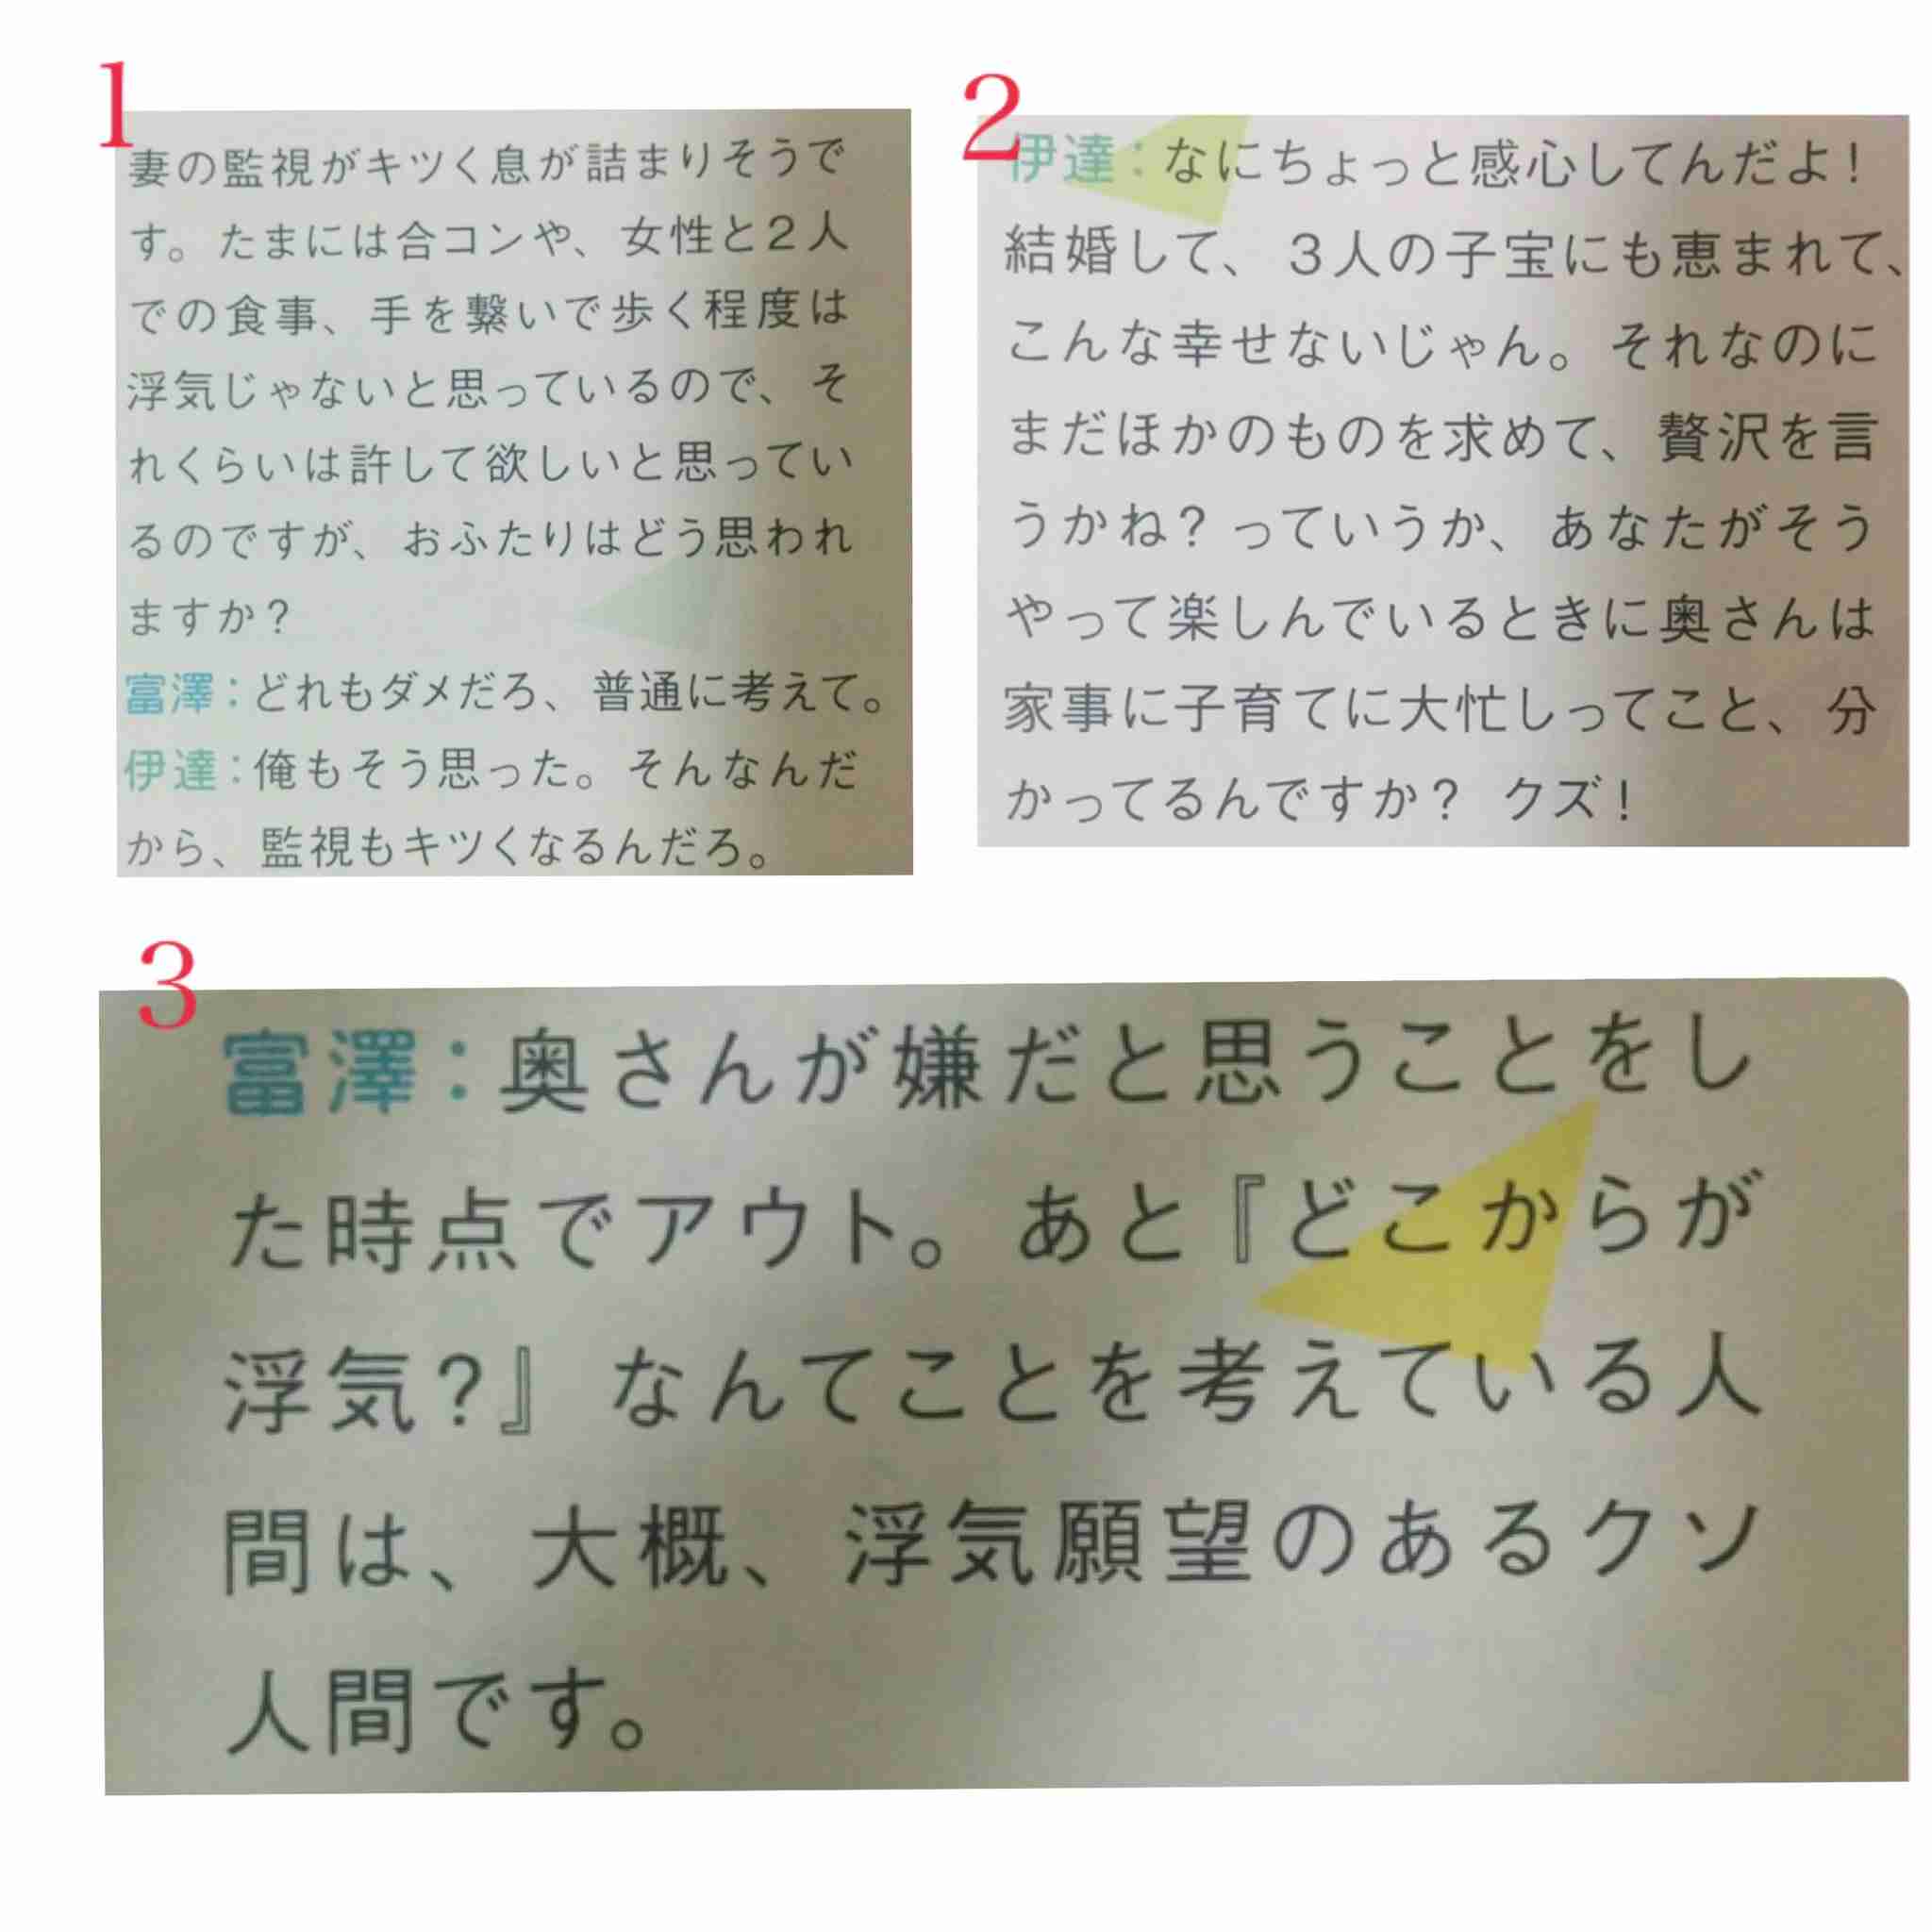 1
妻の監視がキツく息が詰まりそうで
す。たまには合コンや、女性と2人
での食事、手を繋いで歩く程度は
浮気じゃないと思っているので、そ
れくらいは許して欲しいと思ってい
るのですが、おふたりはどう思われ
ますか？
富澤：どれもダメだろ、普通に考えて。
伊達：俺もそう思った。そんなんだ
から、監視もキツくなるんだろ。
2
伊達：なにちょっと感心してんだよ！
結婚して、3人の子宝にも恵まれて、
こんな幸せないじゃん。それなのに
まだほかのものを求めて、贅沢を言
うかね？っていうか、あなたがそう
やって楽しんでいるときに奥さんは
家事に子育てに大忙しってこと、分
かってるんですか？ クズ！
3
富澤：奥さんが嫌だと思うことをし
た時点でアウト。あと『どこからが
浮気？』なんてことを考えている人
間は、大概、浮気願望のあるクソ
人間です。